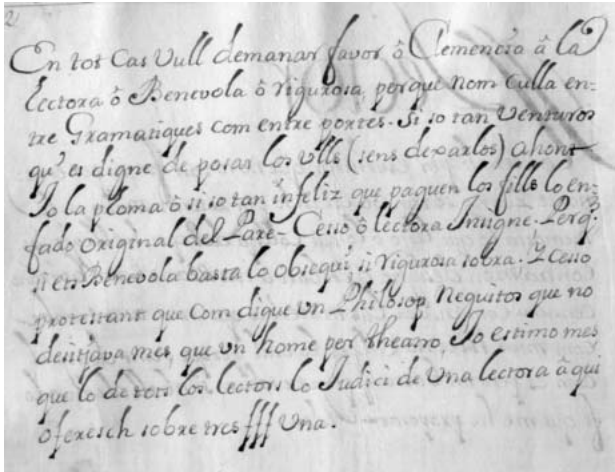 2
En tot Cas Vull demanar favor ô Clemencia â la
Lectora ô Benevola ô rigurosa, perque nom Culla en-
tre Gramatiques com entre portes. Si so tan Venturos
qu'es digne de posar los Vlls (sens dexarlos) ahont
Jo la ploma ô si so tan infeliz que paguen los fills lo en-
fado original del Pare. Cesso ô lectora Insigne. Perq.
si ets Benevola basta lo Obsequi, si rigurosa sobra. Y Cesso
protestant que Com digue un Philosop, Neguitos que no
desitjava mes, que un home per theatro, Jo estimo mes
que lo de tots los lectors lo Judici de Una lectora â qui
oferesch sobre tres fff Una.